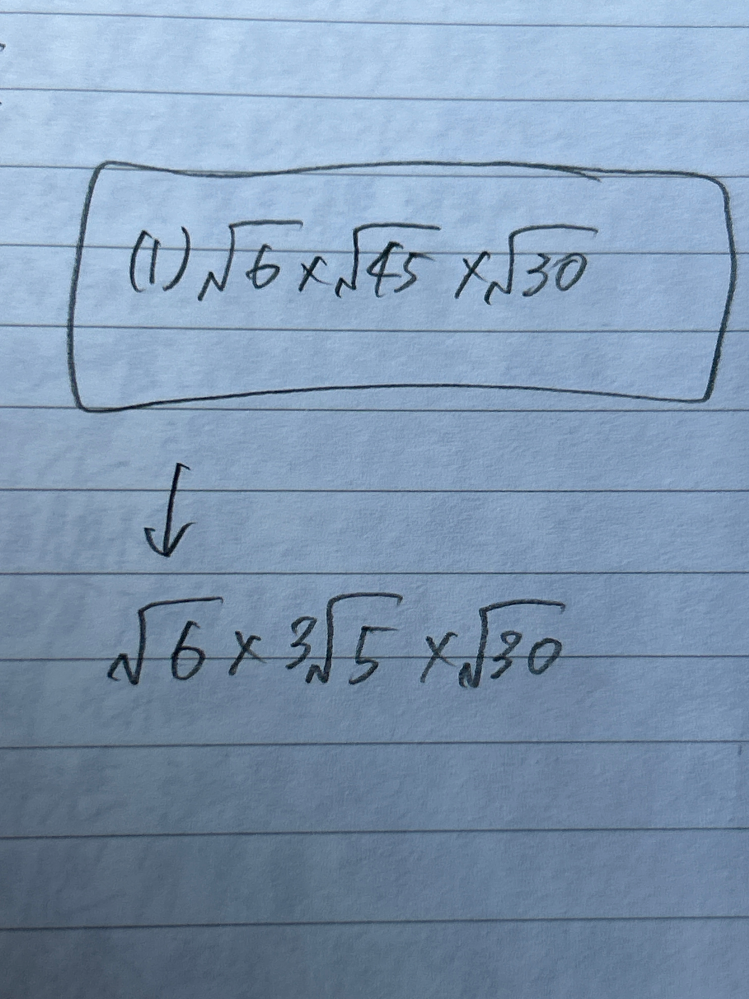 (1) √6 × √45 × √30
↓
√6 × 3√5 × √30